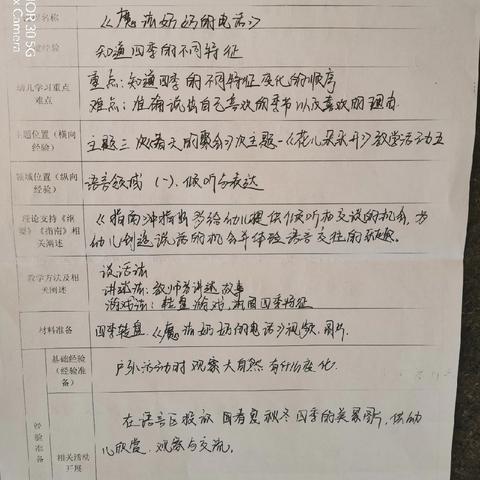 名称 《魔法奶奶的电话》
经验 知道四季的不同特征
幼儿学习重点 难点
重点:知道四季的不同特征变化的顺序
难点:准确说说自己喜欢的季节以及喜欢的理由.
主题位置(横向经验) 主题三 《春天的聚会》次主题一《花儿朵朵开》教学活动五
领域位置(纵向经验) 语言领域 (一)、倾听与表达
理论支持《纲要》《指南》相关阐述
《指南》中指出多给幼儿提供倾听和交谈的机会,为
幼儿创造说话的机会并体验语言交往的乐趣。
教学方法及相关阐述
谈话法
讲述法:教师 讲述故事
游戏法:转盘游戏,巩固四季特征
材料准备 四季转盘.《魔法奶奶的电话》视频.图片
经验准备
基础经验(经验准备) 户外活动时观察大自然有什么变化.
相关活动开展
在语言区投放 春夏秋冬四季的美景图片,供幼
儿欣赏、观察与交流。